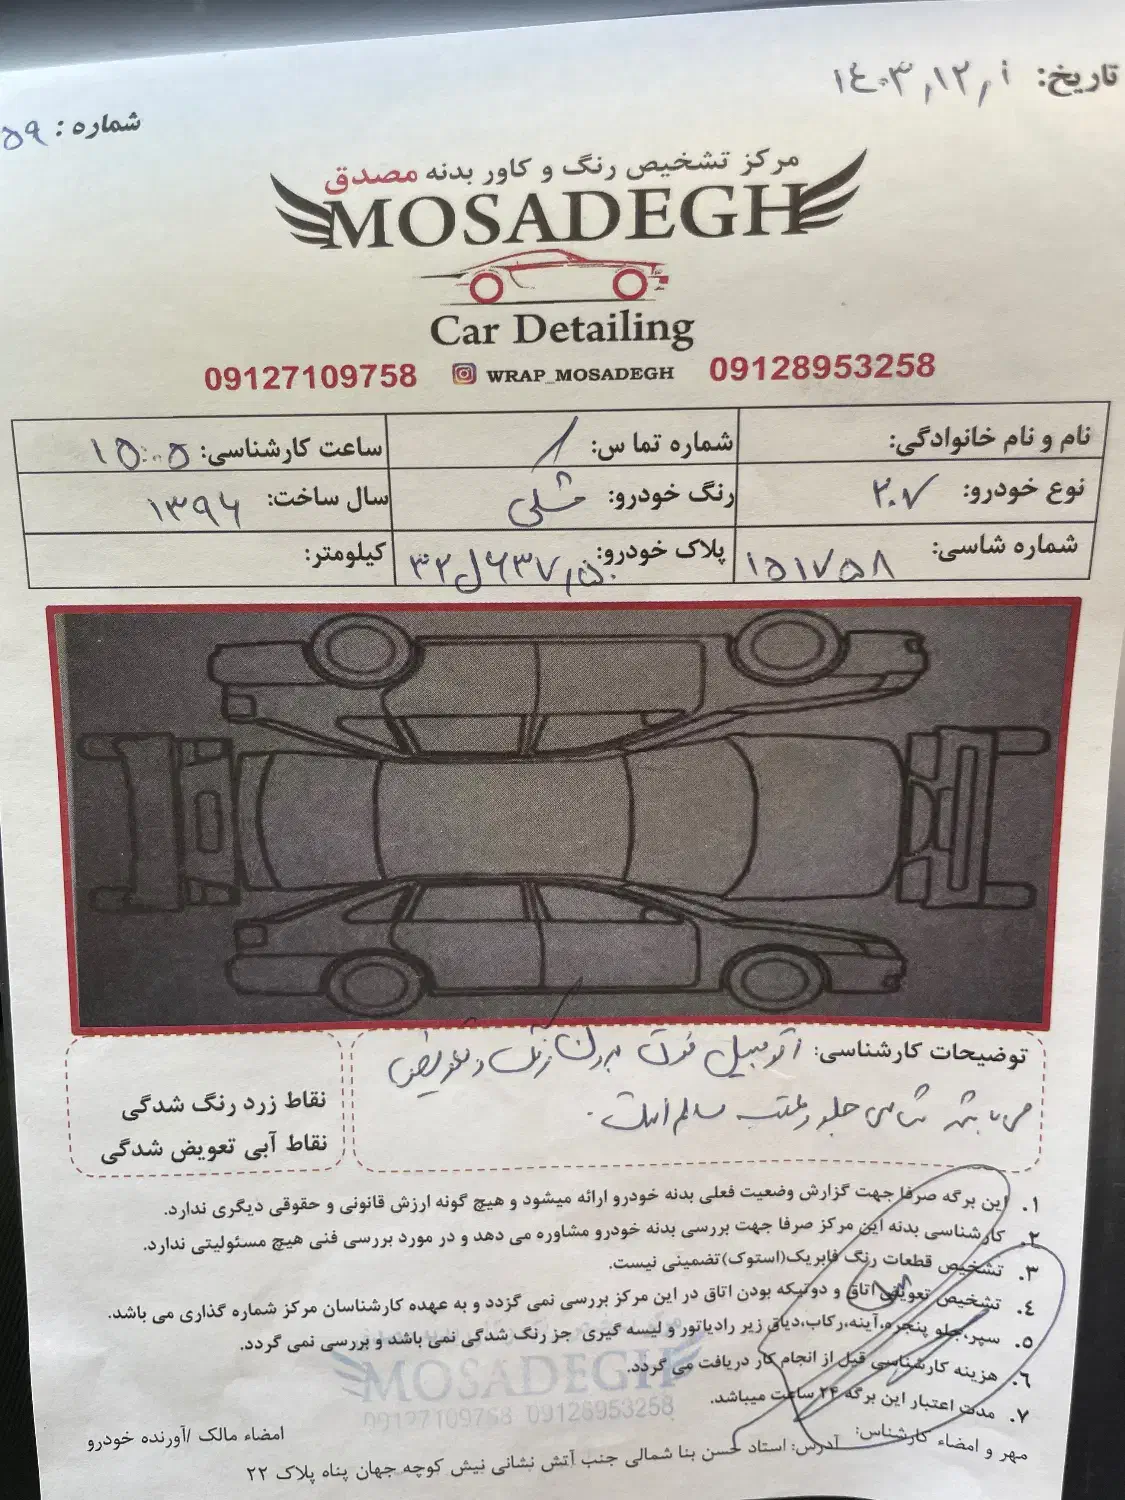 تاریخ: ۱۴۰۳٫۱۲٫۱
شماره: ۵۹
مرکز تشخیص رنگ و کاور بدنه مصدق
MOSADEGH
Car Detailing
09127109758 WRAP_MOSADEGH 09128953258
نام و نام خانوادگی: شماره تماس: ساعت کارشناسی: ۱۵:۰۵
نوع خودرو: ۲۰۷ رنگ خودرو: مشکی سال ساخت: ۱۳۹۶
شماره شاسی: ۱۵۱۷۵۸ پلاک خودرو: کیلومتر:
توضیحات کارشناسی: اتومبیل فوق بدون رنگ و تعویض
می باشد شاسی جلو و عقب سالم است.
نقاط زرد رنگ شدگی
نقاط آبی تعویض شدگی
۱. این برگه صرفا جهت گزارش وضعیت فعلی بدنه خودرو ارائه میشود و هیچ گونه ارزش قانونی و حقوقی دیگری ندارد.
۲. کارشناسی بدنه این مرکز صرفا جهت بررسی بدنه خودرو مشاوره می دهد و در مورد بررسی فنی هیچ مسئولیتی ندارد.
۳. تشخیص قطعات رنگ فابریک(استوک)تضمینی نیست.
۴. تشخیص تعویض اتاق و دوتیکه بودن اتاق در این مرکز بررسی نمی گردد و به عهده کارشناسان مرکز شماره گذاری می باشد.
۵. سپر،جلو پنجره،آینه،رکاب،دیاق زیر رادیاتور و لیسه گیری جز رنگ شدگی نمی باشد و بررسی نمی گردد.
۶. هزینه کارشناسی قبل از انجام کار دریافت می گردد.
۷. مدت اعتبار این برگه ۲۴ ساعت میباشد.
MOSADEGH
09127109758 09128953258
مهر و امضاء کارشناس: امضاء مالک /آورنده خودرو
آدرس: استاد حسن بنا شمالی جنب آتش نشانی نبش کوچه جهان پناه پلاک ۲۲